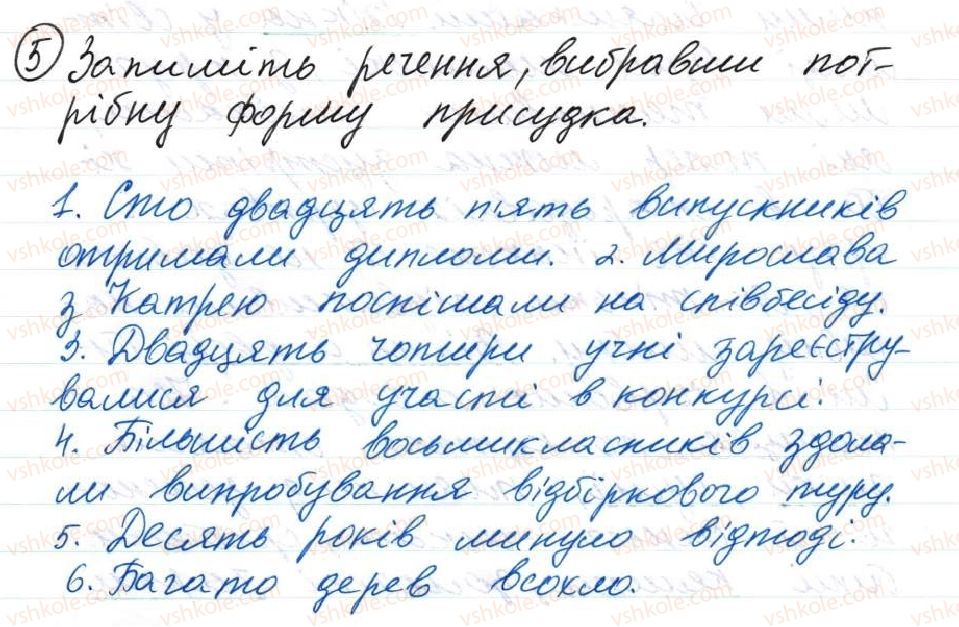 5 Запишіть речення, вибравши пот-
рібну форму присудка.
1. Сто двадцять п'ять випускників
отримали дипломи. 2. Мирослава
з Катрею поспішали на співбесіду.
3. Двадцять чотири учні зареєстру-
валися для участі в конкурсі.
4. Більшість восьмикласників здола-
ли випробування відбіркового туру.
5. Десять років минуло відтоді.
6. Багато дерев всохло.